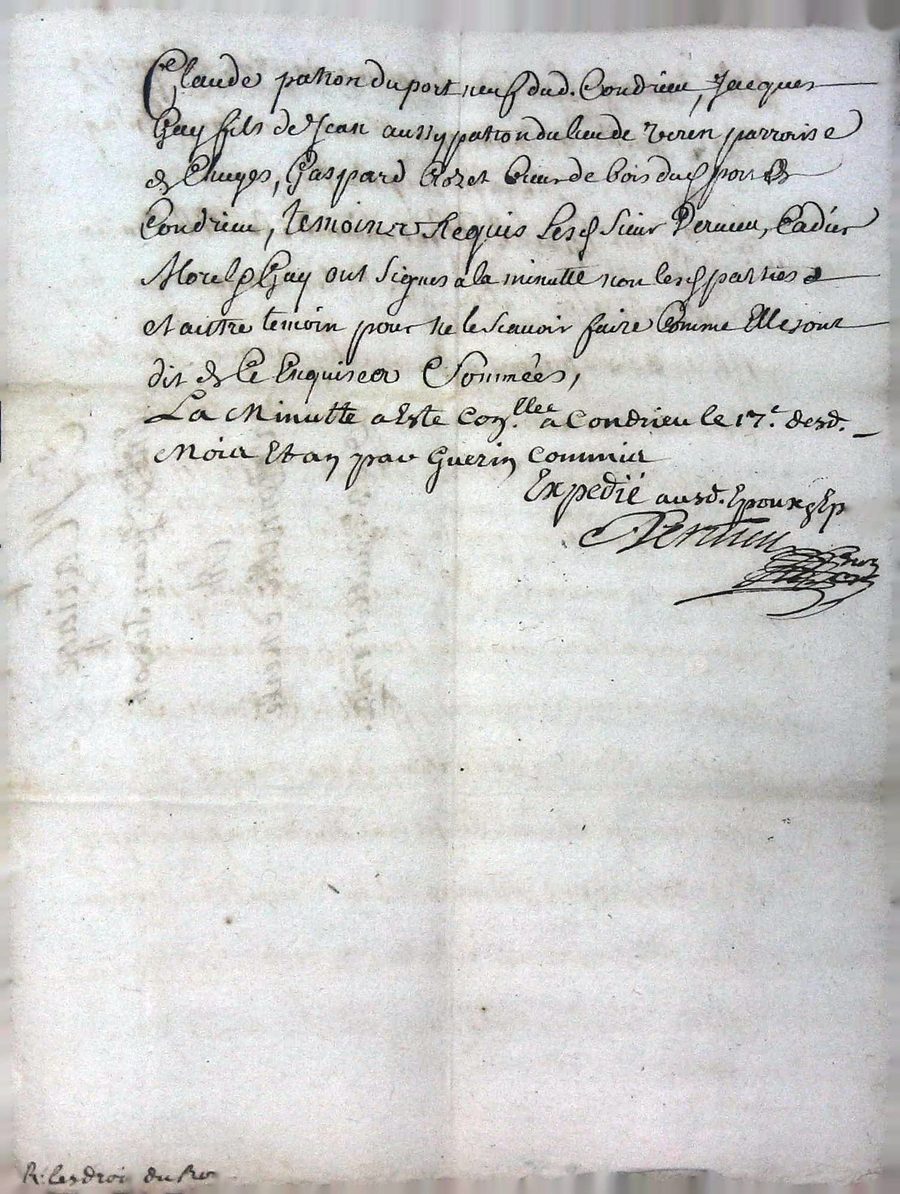 Claude patron du port neuf dud. Condrieu, Jacques
Gay fils de Jean aussy patron du lieu de verin parroise
de Chuyes, Gaspard Rozet Cieur de bois dud port de
Condrieu, temoins Requis Lesd Sieur Vernieu, Cadier
Morel & Gay ont Signes a la minutte non lesd parties
et autre temoin pour ne le scavoir faire Comme Elles ont
dit de Ce Enquises & Sommées,
La Minutte a Este Con.lleé a Condrieu le 17.e desd.
Mois Et an par Guerin Commis
Expedié ausd. Epoux
Vernieu
R. les droi du Roy